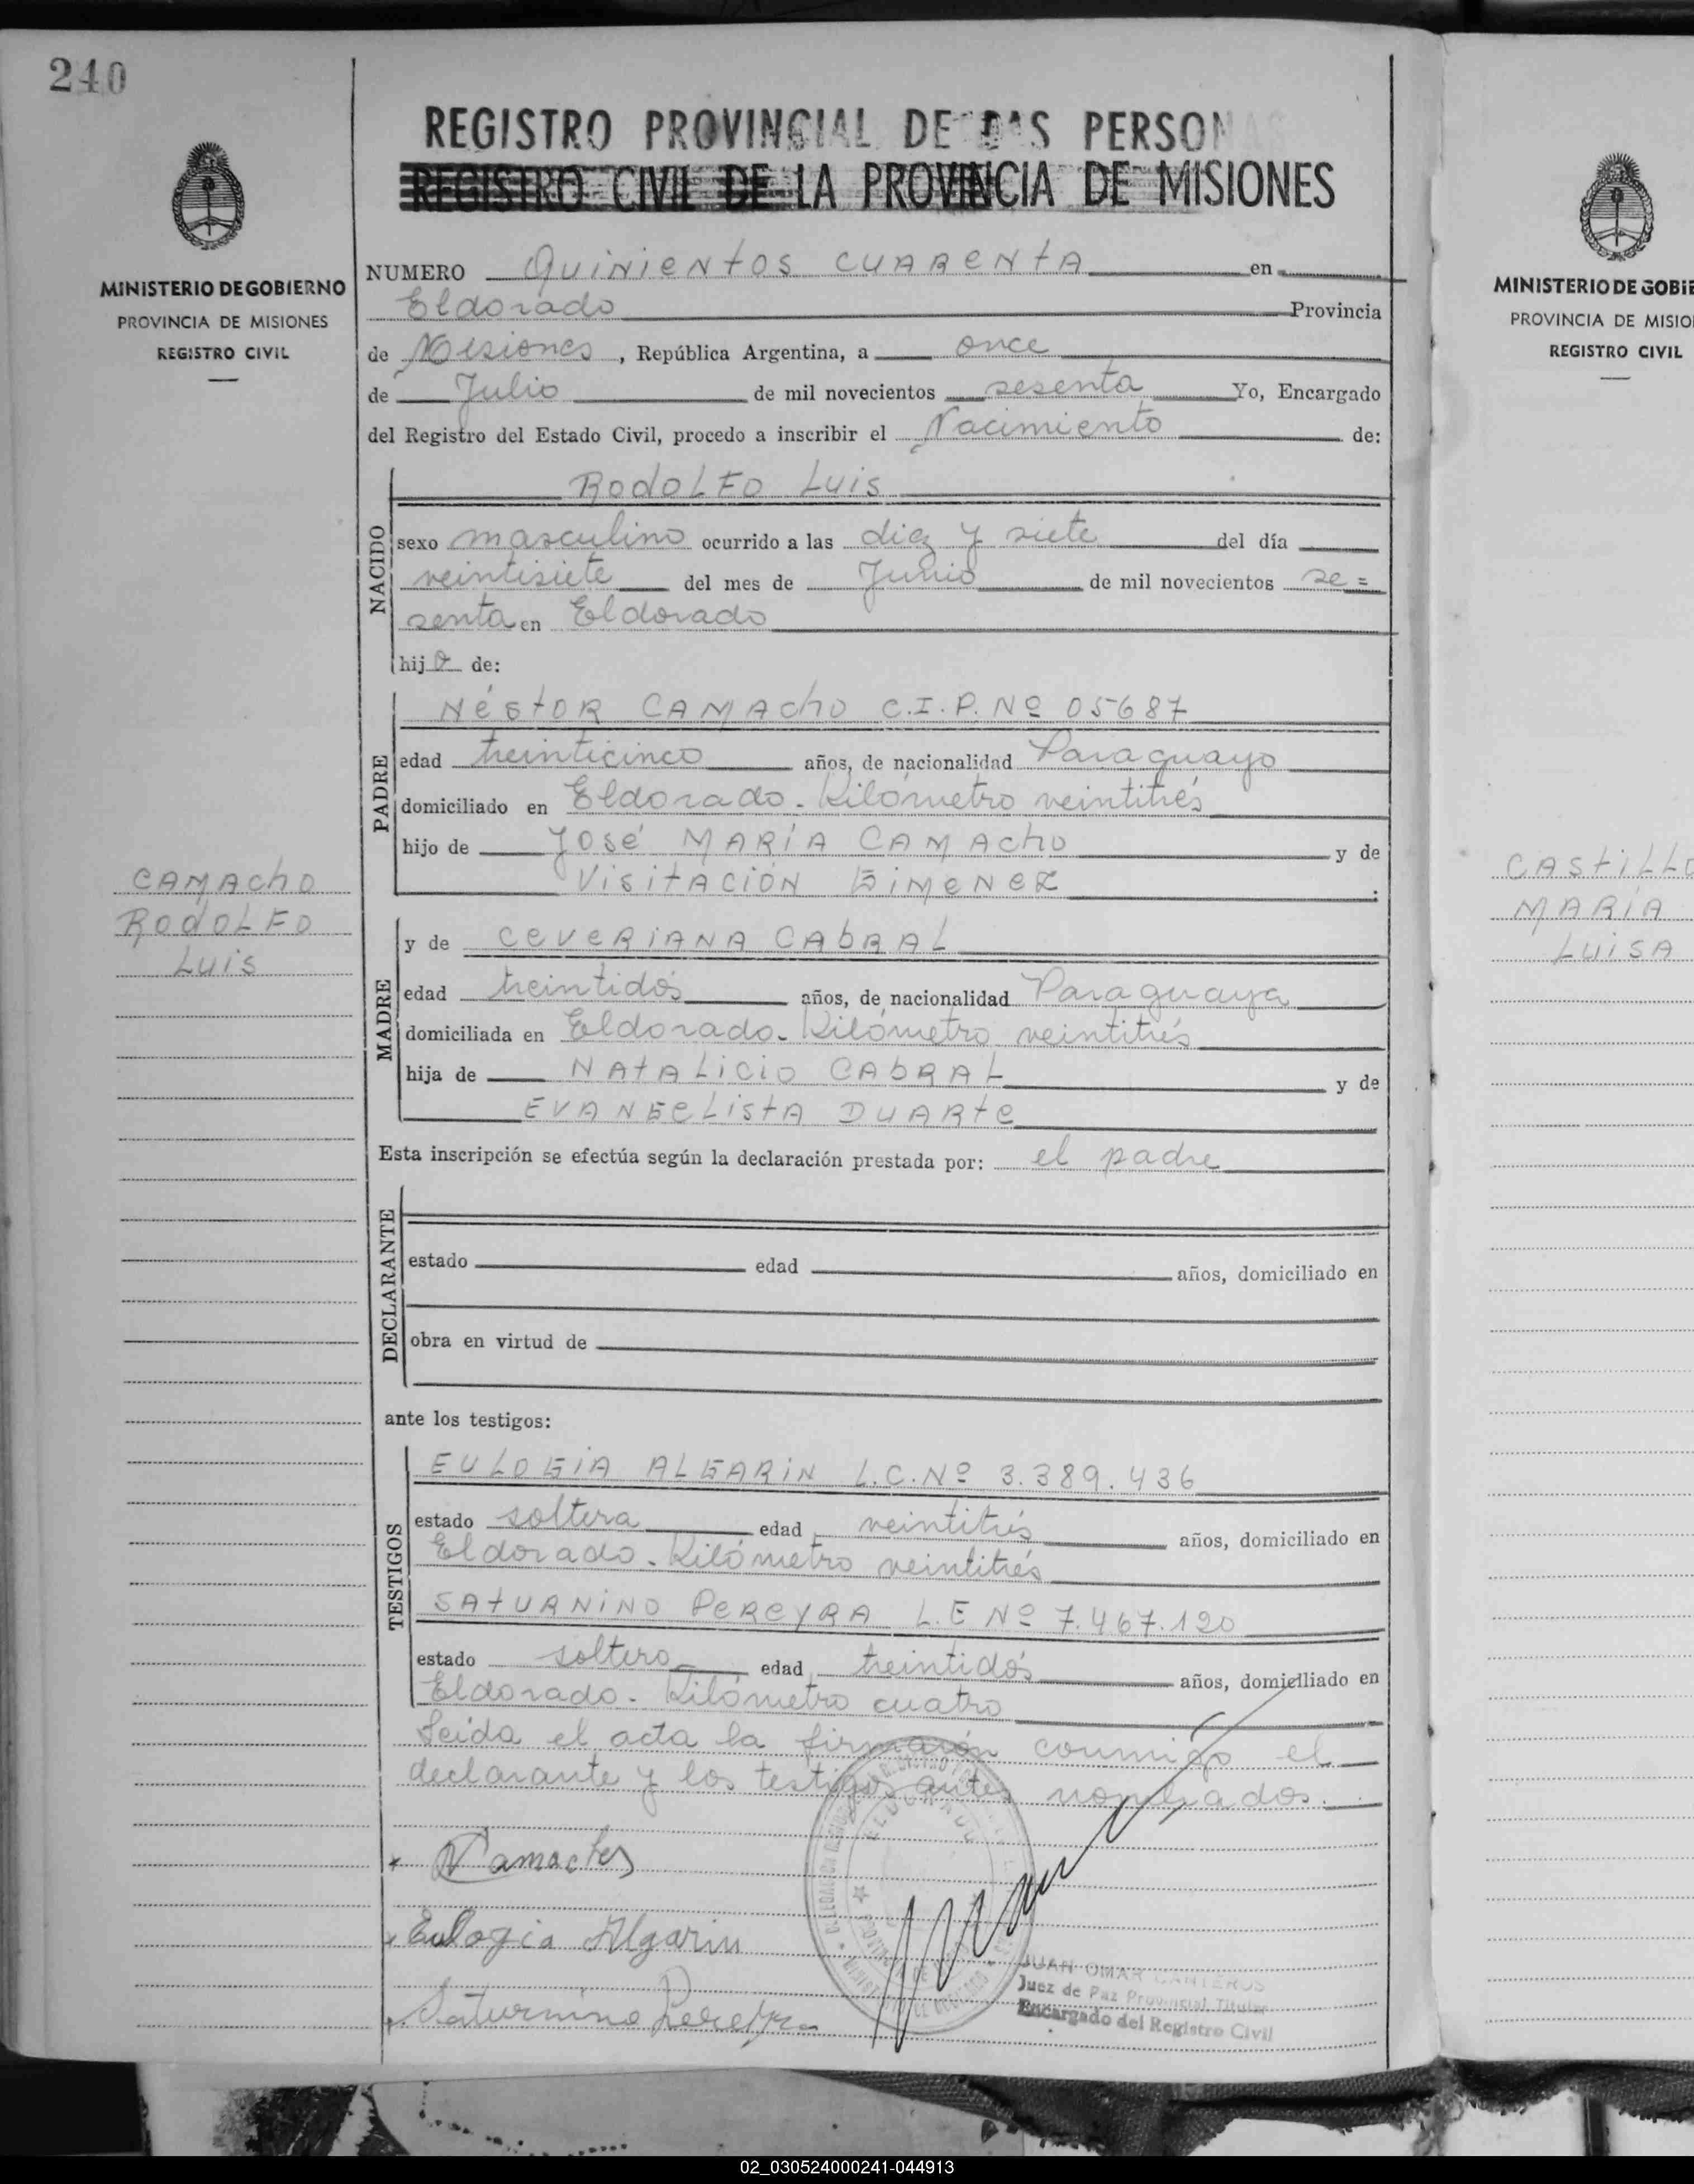 240
REGISTRO PROVINCIAL DE LAS PERSONAS
REGISTRO CIVIL DE LA PROVINCIA DE MISIONES
MINISTERIO DE GOBIERNO
PROVINCIA DE MISIONES
REGISTRO CIVIL
NUMERO Quinientos cuarenta en
Eldorado Provincia
de Misiones, República Argentina, a once
de Julio de mil novecientos sesenta Yo, Encargado
del Registro del Estado Civil, procedo a inscribir el Nacimiento de:
NACIDO
Rodolfo Luis
sexo masculino ocurrido a las diez y siete del día
veintisiete del mes de Junio de mil novecientos se=
senta en Eldorado
hijo de:
PADRE
Néstor CAMACHO C.I.P. Nº 05687
edad treinticinco años, de nacionalidad Paraguayo
domiciliado en Eldorado. Kilómetro veintitrés
hijo de José María CAMACHO y de
Visitación GIMENEZ.
CAMACHO
RODOLFO
Luis
MADRE
y de Ceveriana CABRAL
edad treintidós años, de nacionalidad Paraguaya
domiciliada en Eldorado. Kilómetro veintitrés
hija de Natalicio CABRAL y de
EVANGELISTA DUARTE
Esta inscripción se efectúa según la declaración prestada por: el padre
DECLARANTE
estado edad años, domiciliado en
obra en virtud de
ante los testigos:
TESTIGOS
EULOGIA ALGARIN L.C. Nº 3.389.436
estado soltera edad veintitrés años, domiciliado en
Eldorado. Kilómetro veintitrés
SATURNINO PEREYRA L.E Nº 7.467.120
estado soltero edad treintidós años, domiciliado en
Eldorado. Kilómetro cuatro
Leida el acta la firmarón conmigo el
declarante y los testigos antes nombrados.
Eulogia Algarin
Saturnino Pereyra
JUAN OMAR CANTEROS
Juez de Paz Provincial Titular
Encargado del Registro Civil
ELDORADO
MINISTERIO DE GOBIE
PROVINCIA DE MISIO
REGISTRO CIVIL
CASTILLO
MARIA
LUISA
02_030524000241-044913